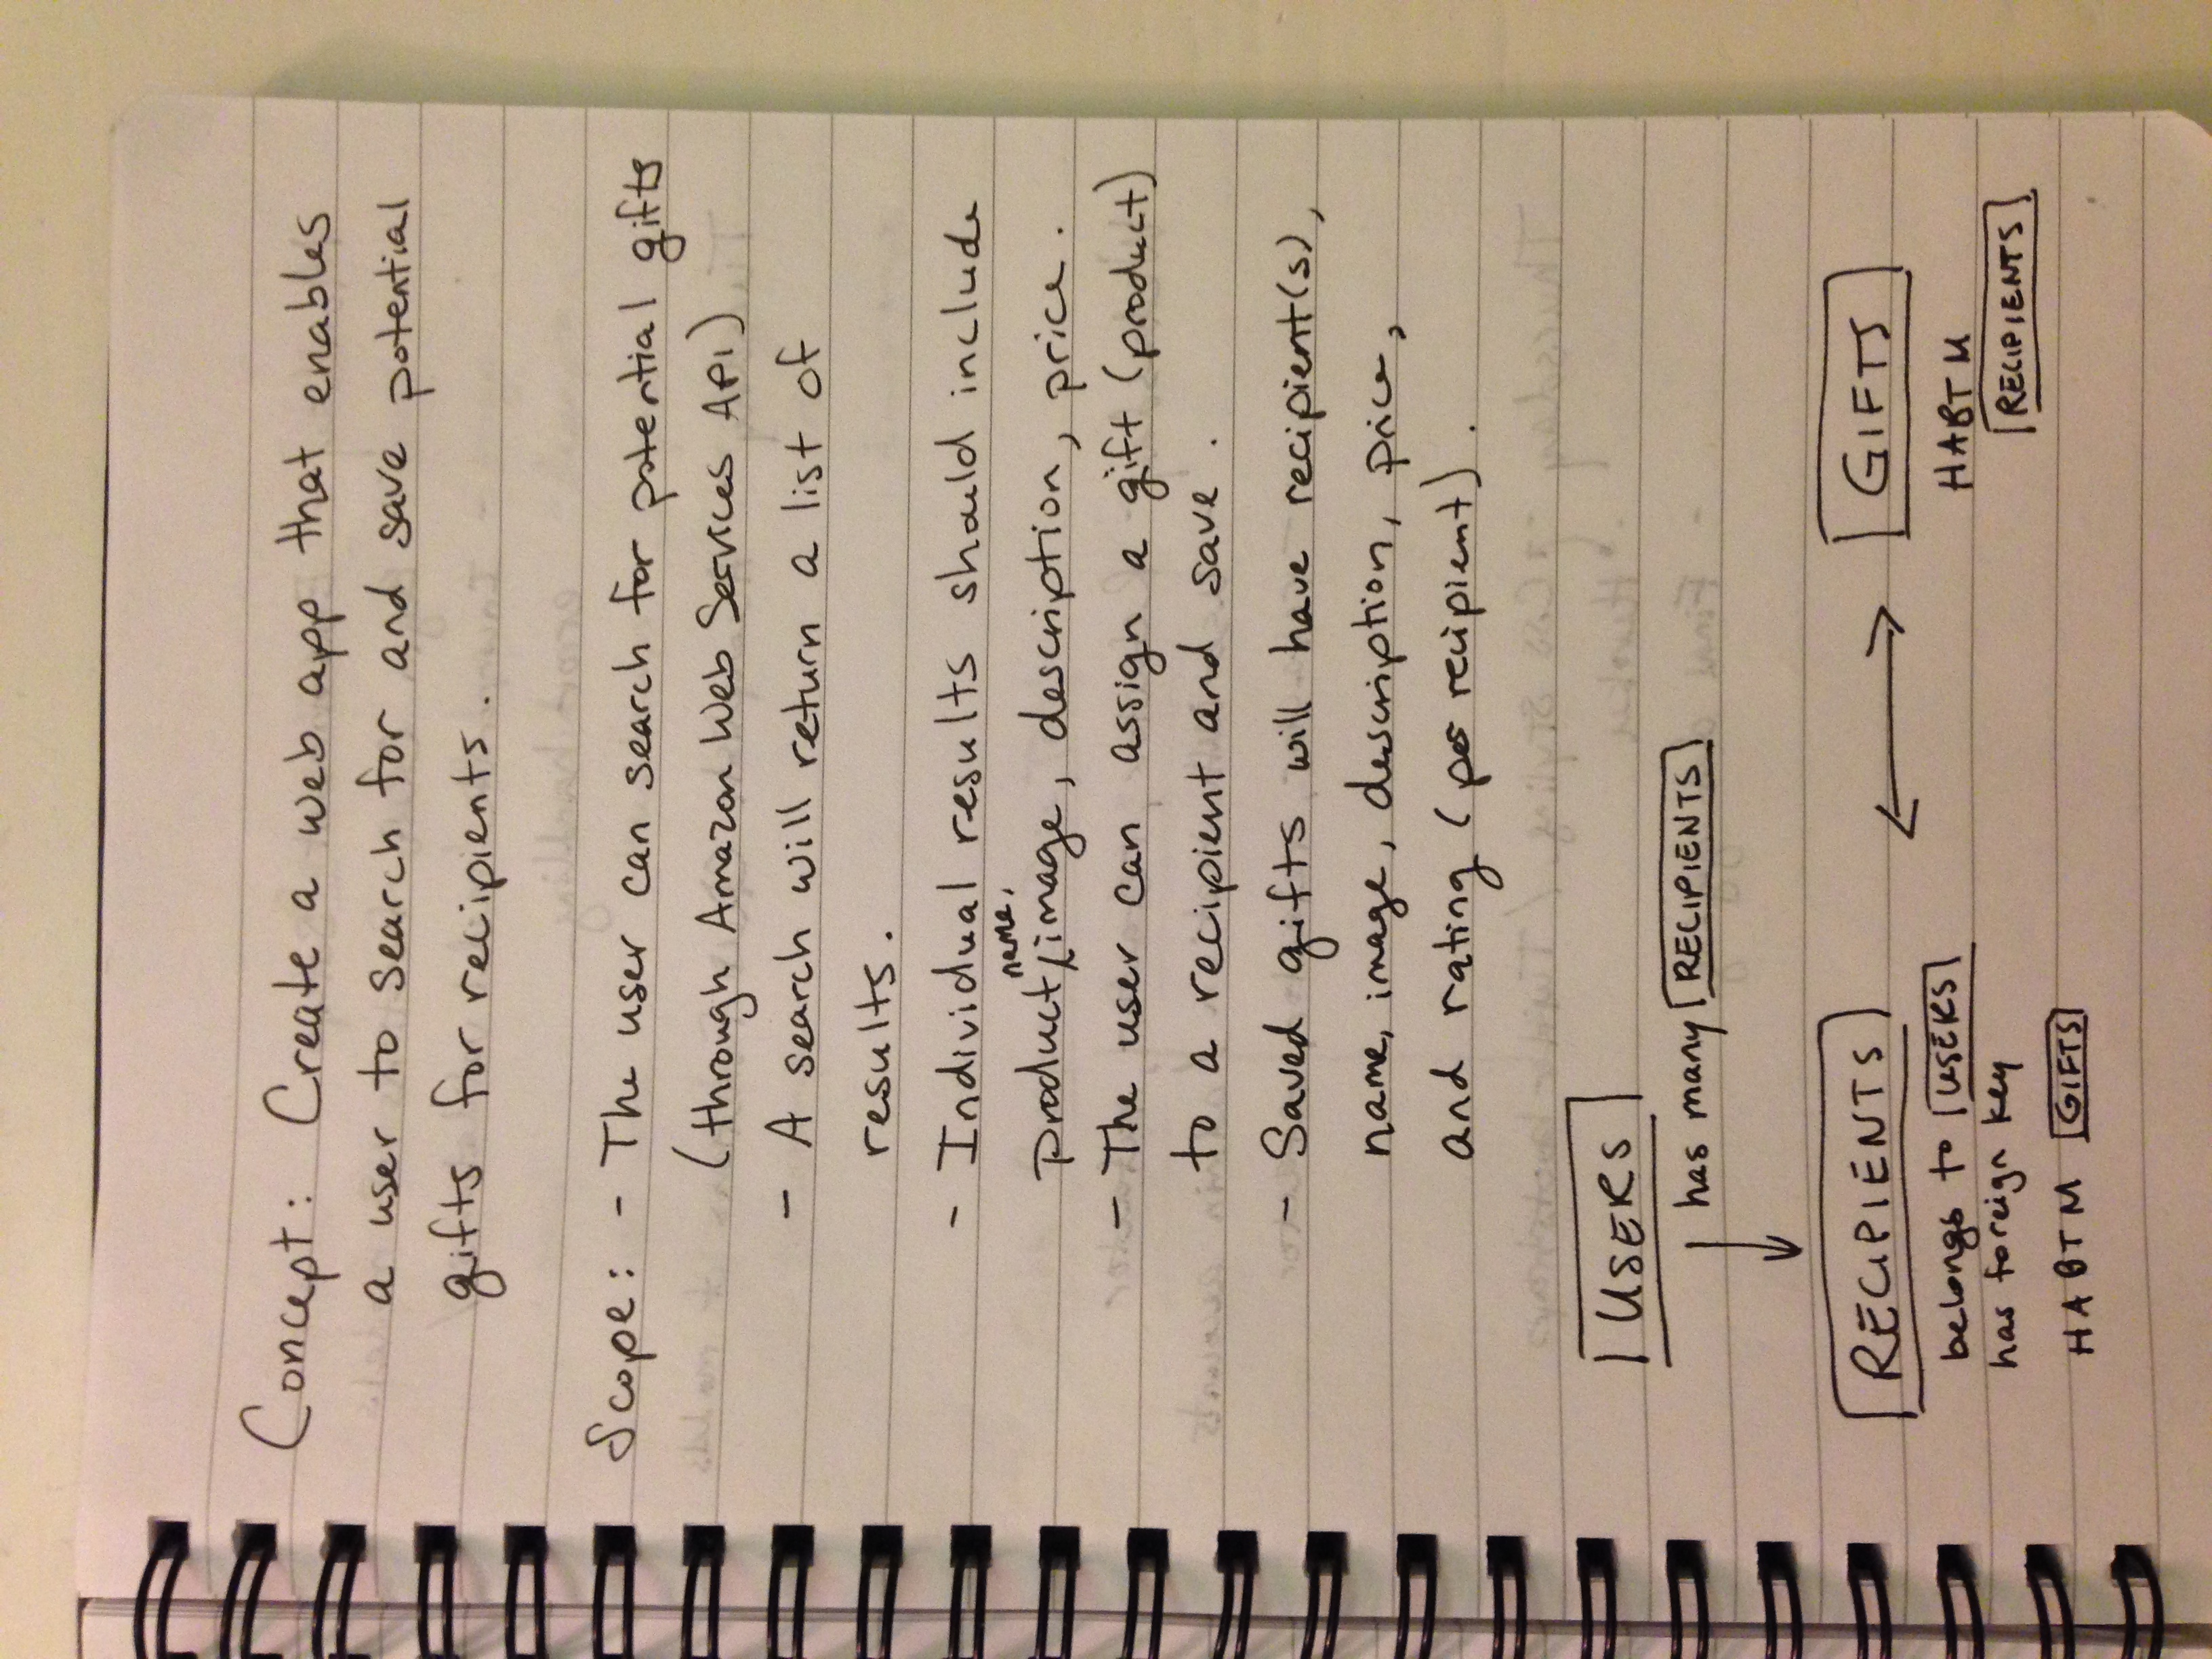 Concept: Create a web app that enables
a user to search for and save potential
gifts for recipients.
Scope: - The user can search for potential gifts
(through Amazon Web Services API)
- A search will return a list of
results.
- Individual results should include
name,
product, image, description, price.
- The user can assign a gift (product)
to a recipient and save.
- Saved gifts will have recipient(s),
name, image, description, price,
and rating (per recipient).
USERS
has many RECIPIENTS
RECIPIENTS
GIFTS
belongs to USERS
has foreign key
HABTM GIFTS
HABTM
RECIPIENTS